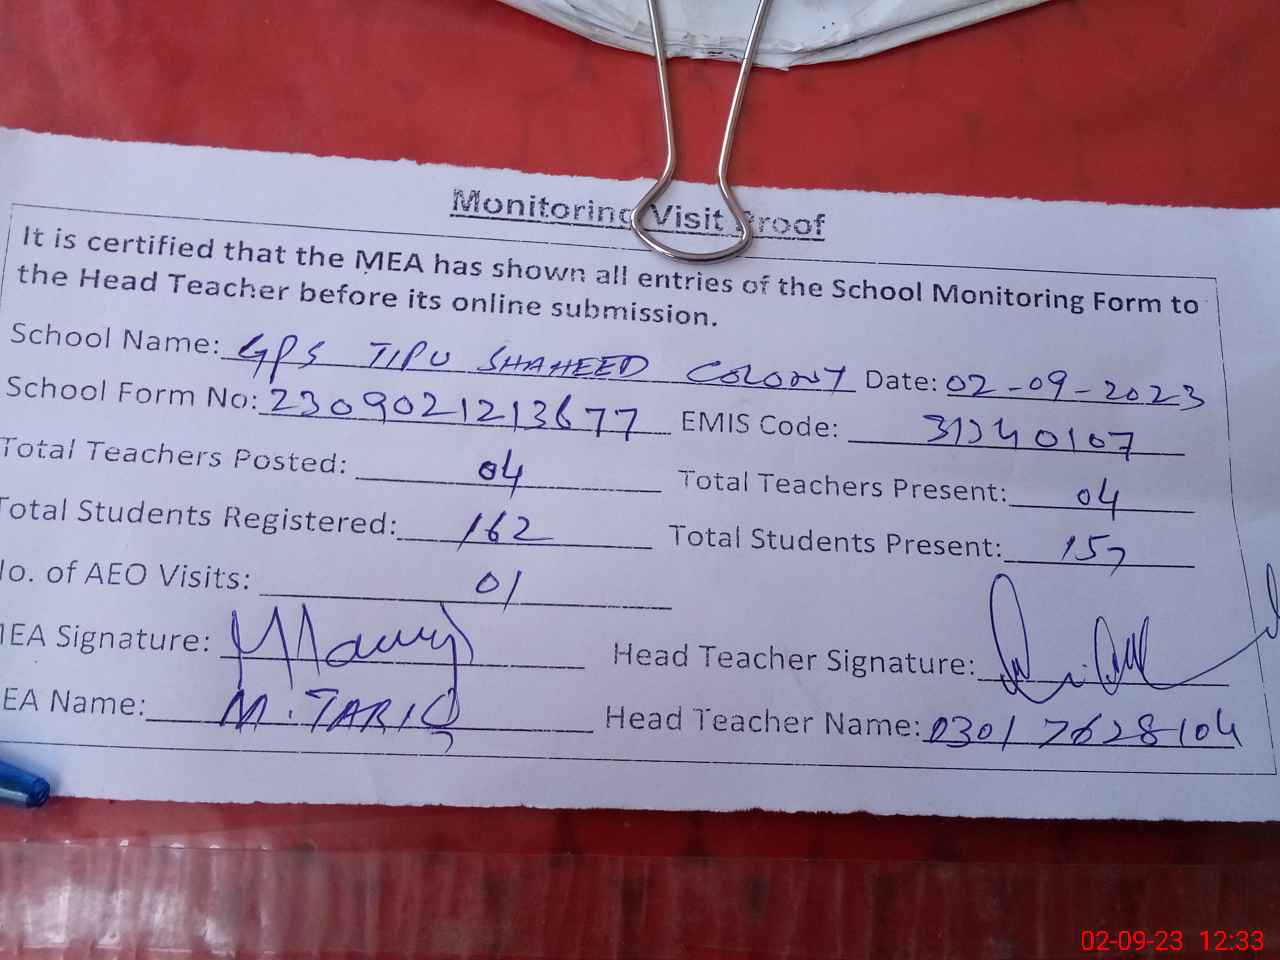 Monitoring Visit Proof
It is certified that the MEA has shown all entries of the School Monitoring Form to
the Head Teacher before its online submission.
School Name: GPS TIPU SHAHEED COLONY Date: 02-09-2023
School Form No: 2309021213677 EMIS Code: 31240107
Total Teachers Posted: 04 Total Teachers Present: 04
Total Students Registered: 162 Total Students Present: 157
No. of AEO Visits: 01
MEA Signature: Head Teacher Signature:
EA Name: M. TARIQ Head Teacher Name: 0301 7628104
02-09-23 12:33